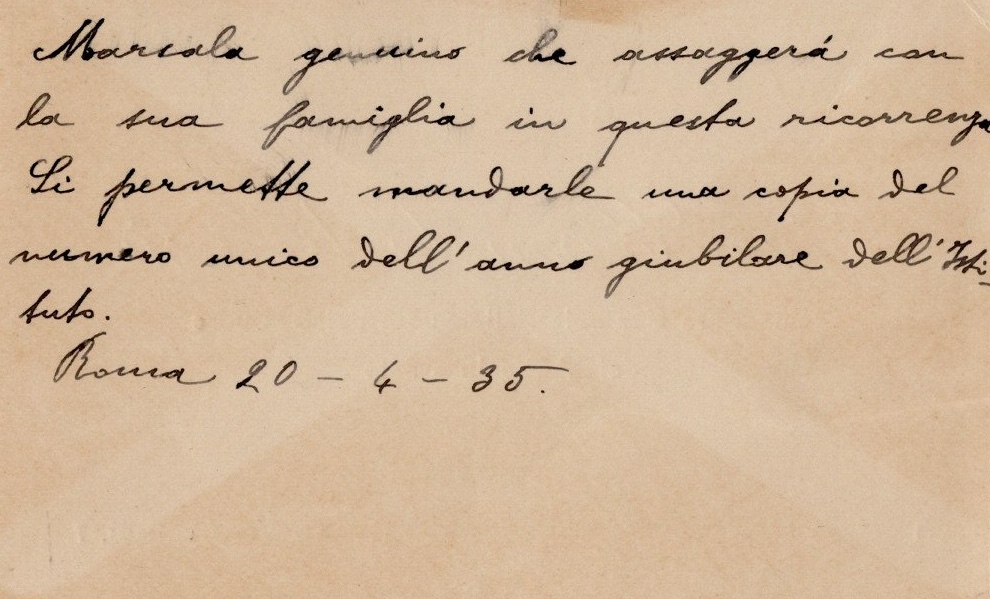 Marsala genuino che assaggerá con
la sua famiglia in questa ricorrenza
Si permette mandarle una copia del
numero unico dell'anno giubilare dell'Isti-
tuto.
Roma 20 - 4 - 35.